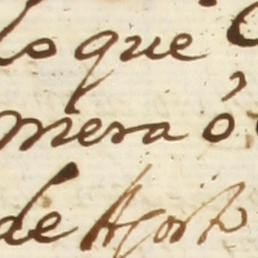 lo que
mera ó
de Agosto